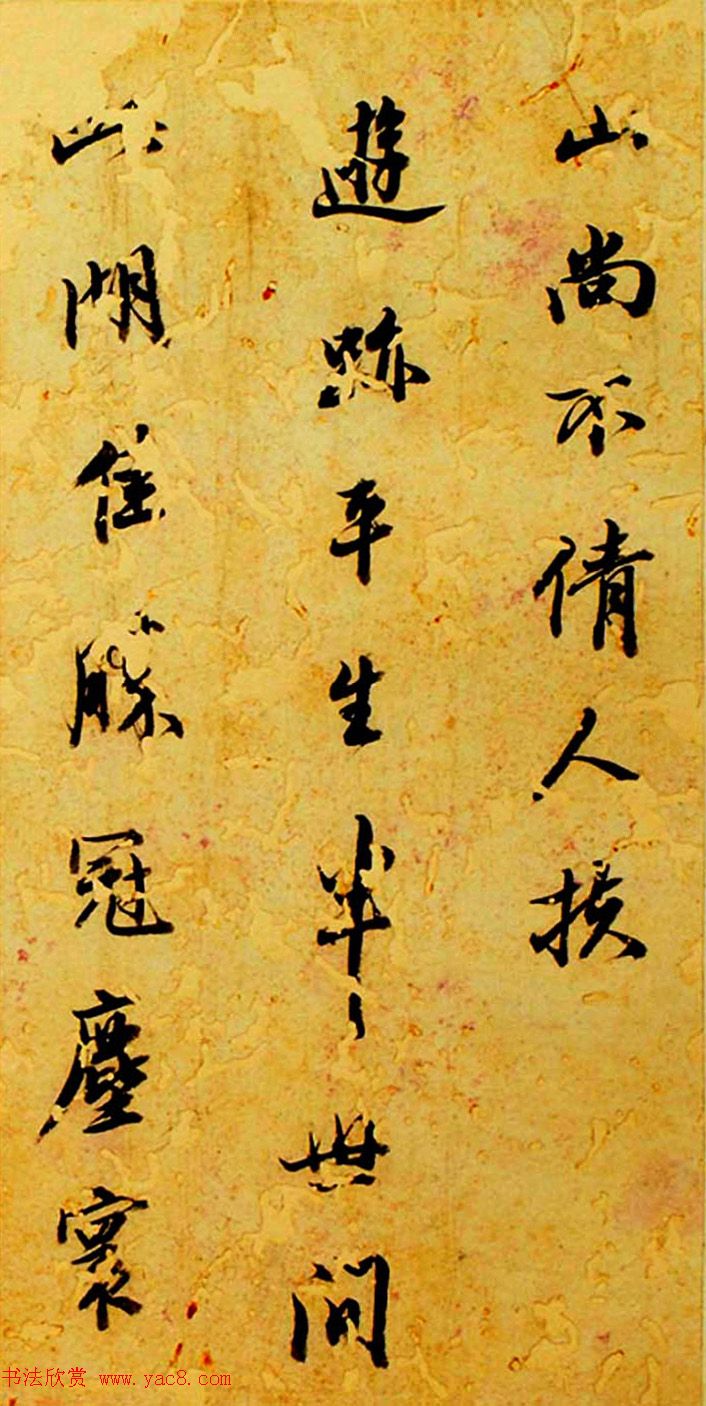 山尚不倩人扶
遊跡平生半世間
山湖佳勝冠塵寰
书法欣赏 www.yac8.com